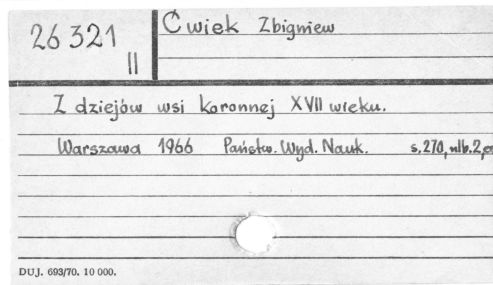 26 321
II
Ćwiek Zbigniew
Z dziejów wsi koronnej XVII wieku.
Warszawa 1966 Państw. Wyd. Nauk. s. 270, nlb. 2,
DUJ. 693/70. 10 000.